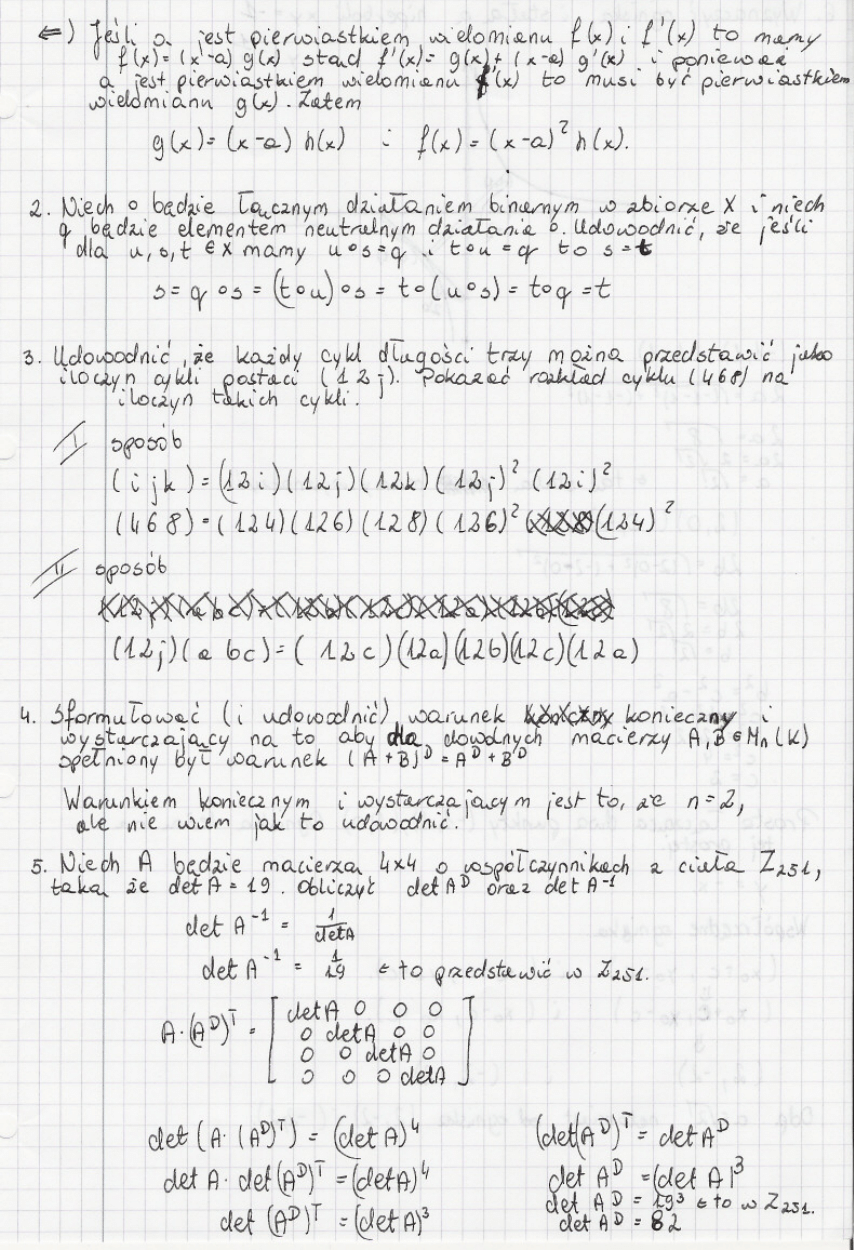 ⇐) Jeśli a jest pierwiastkiem wielomianu f(x) i f'(x) to mamy
f(x) = (x-a) g(x) stąd f'(x) = g(x) + (x-a) g'(x) i ponieważ
a jest pierwiastkiem wielomianu f'(x) to musi być pierwiastkiem
wielomianu g(x). Zatem
g(x) = (x-a) h(x) i f(x) = (x-a)² h(x).
2. Niech o będzie łącznym działaniem binarnym w zbiorze X i niech
q będzie elementem neutralnym działania o. Udowodnić, że jeśli
dla u, s, t ∈ X mamy u∘s = q i t∘u = q to s = t
s = q∘s = (t∘u)∘s = t∘(u∘s) = t∘q = t
3. Udowodnić, że każdy cykl długości trzy można przedstawić jako
iloczyn cykli postaci (1 2 j). Pokazać rozkład cyklu (468) na
iloczyn takich cykli.
I sposób
(i j k) = (12i)(12j)(12k)(12j)² (12i)²
(468) = (124)(126)(128)(126)² (124)²
II sposób
(12j)(a bc) = (12c)(12a)(12b)(12c)(12a)
4. Sformułować (i udowodnić) warunek konieczny i
wystarczający na to aby dla dowolnych macierzy A, B ∈ Mn(K)
spełniony był warunek (A+B)ᴰ = Aᴰ + Bᴰ
Warunkiem koniecznym i wystarczającym jest to, że n = 2,
ale nie wiem jak to udowodnić.
5. Niech A będzie macierzą 4x4 o współczynnikach z ciała Z₂₅₁,
taką że det A = 19. Obliczyć det Aᴰ oraz det A⁻¹
det A⁻¹ = 1/detA
det A⁻¹ = 1/19 ← to przedstawić w Z₂₅₁.
A·(Aᴰ)ᵀ = [ detA 0 0 0
0 detA 0 0
0 0 detA 0
0 0 0 detA ]
det (A·(Aᴰ)ᵀ) = (det A)⁴
det A · det (Aᴰ)ᵀ = (det A)⁴
det (Aᴰ)ᵀ = (det A)³
(det(Aᴰ)ᵀ = det Aᴰ
det Aᴰ = (det A)³
det Aᴰ = 19³ ← to w Z₂₅₁.
det Aᴰ = 82